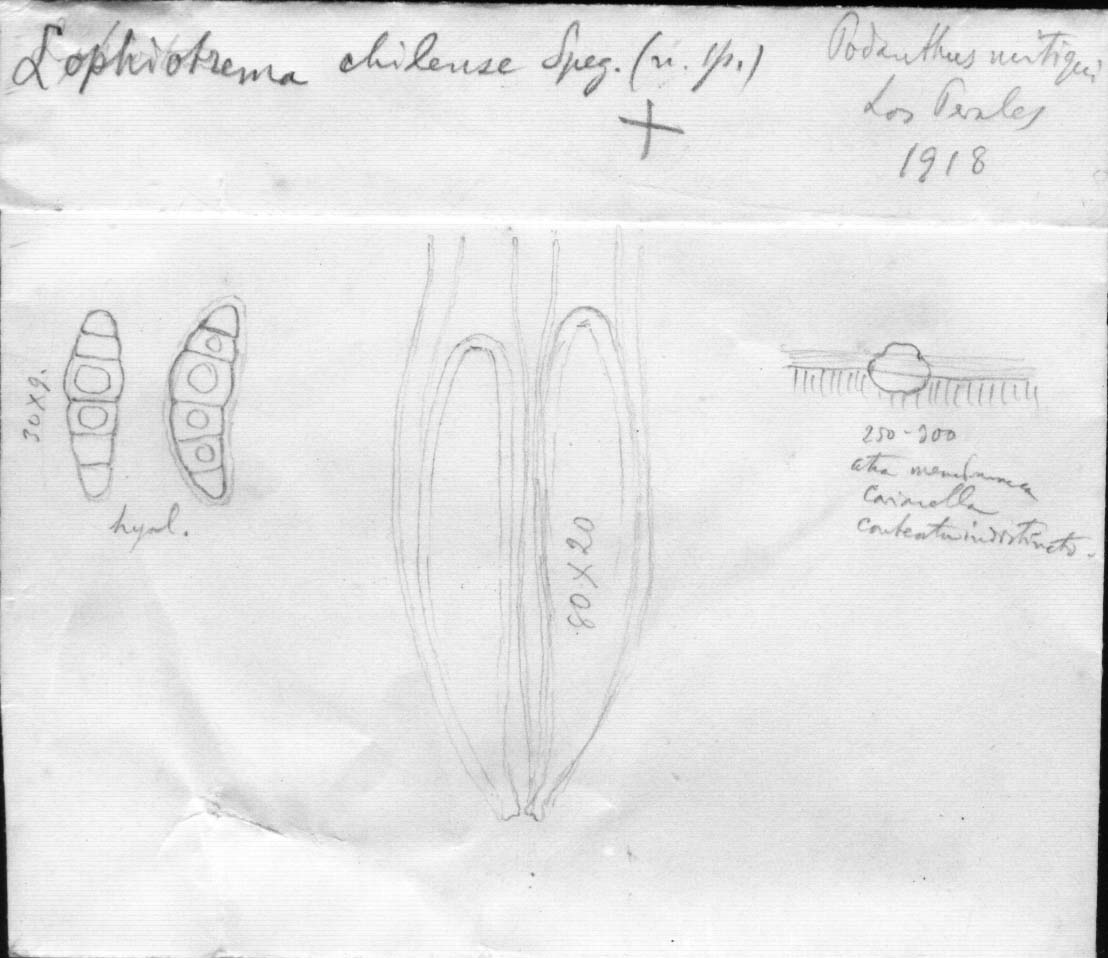 Lophiotrema chilense Speg. (n. sp.)
Podanthus mitiqui
Los Perales
1918
30 x 9.
hyal.
80 x 20
250-300
atra membranacea
carnosella
contextu indistincto.